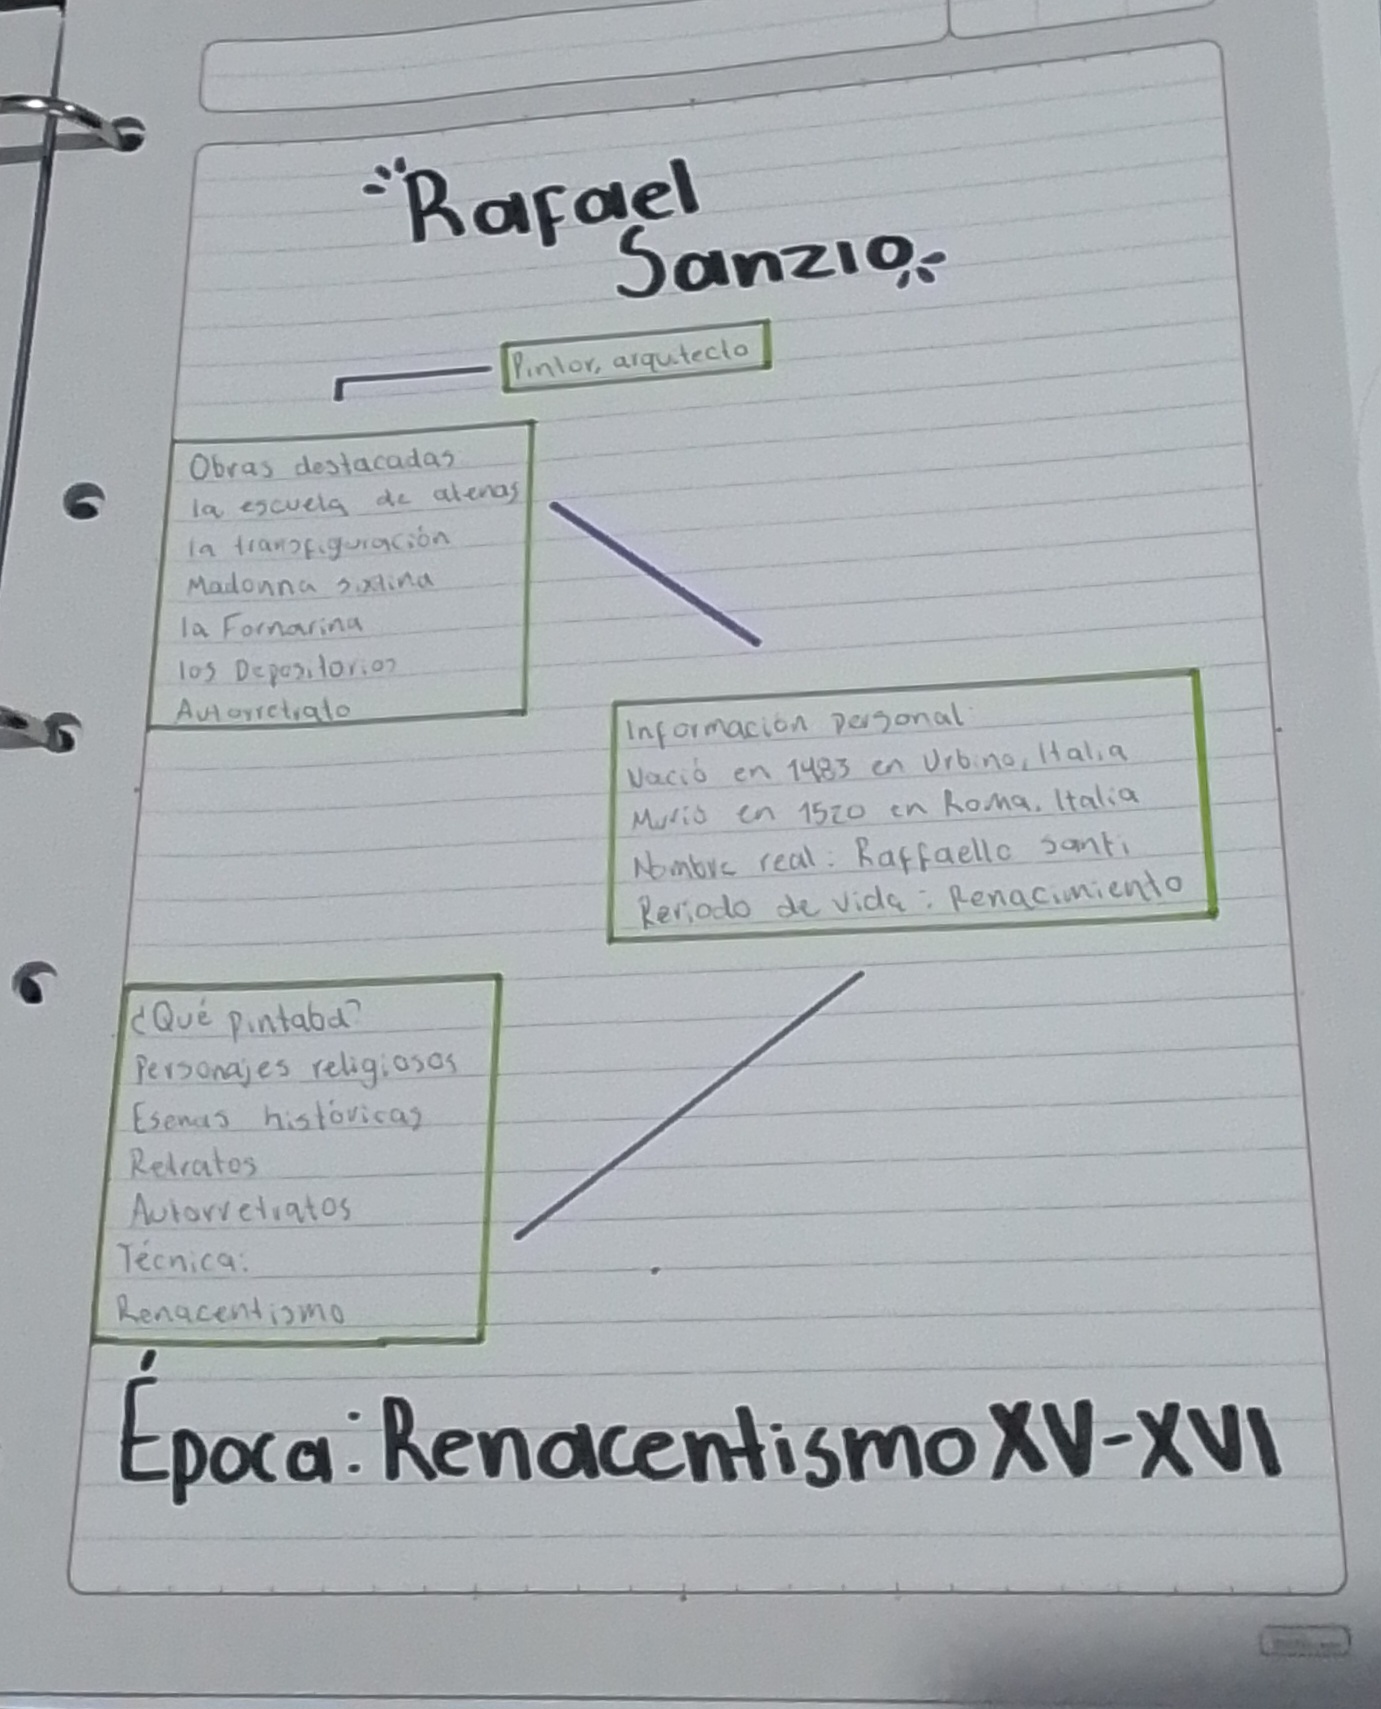 Rafael
Sanzio
Pintor, arquitecto
Obras destacadas
la escuela de atenas
la transfiguración
Madonna sixtina
la Fornarina
los Depositorios
Autorretrato
Información personal
Nació en 1483 en Urbino, Italia
Murió en 1520 en Roma, Italia
Nombre real: Raffaello santi
Periodo de vida: Renacimiento
¿Qué pintaba?
Personajes religiosos
Esenas históricas
Retratos
Autorretratos
Técnica:
Renacentismo
Época: Renacentismo XV-XVI